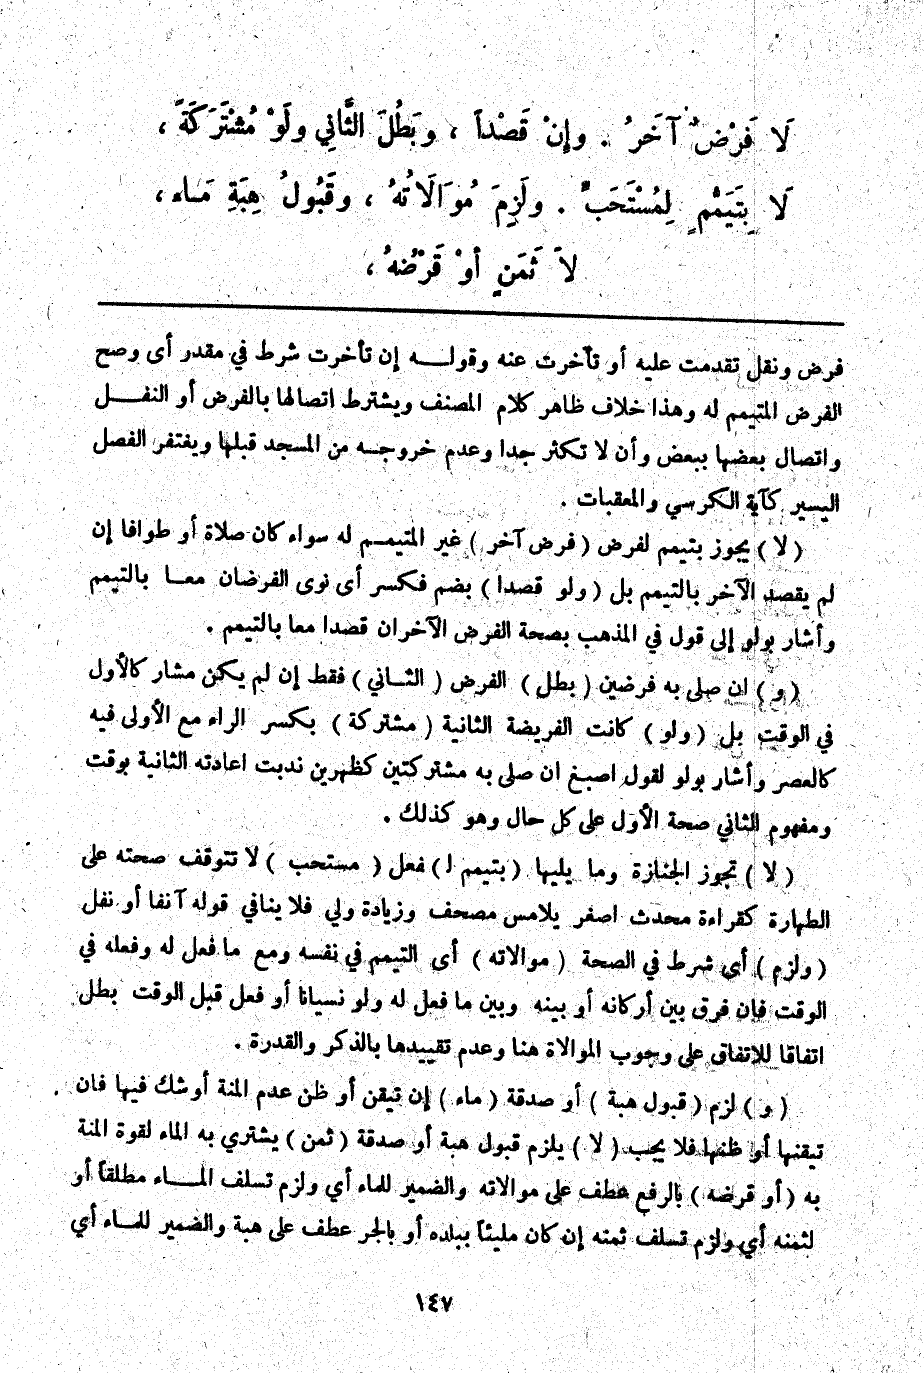 لَا فَرْضٌ آخَرُ . وإِنْ قَصْداً ، وبَطُلَ الثَّانِي ولَوْ مُشْتَرَكَةً ،
لَا بِتَيَمُّمٍ لِمُسْتَحَبٍّ . ولَزِمَ مُوَالَاتُهُ ، وقَبُولُ هِبَةِ مَاء ،
لاَ ثَمَنٍ أَوْ قَرْضُهُ ،
فرض ونقل تقدمت عليه أو تأخرت عنه وقولـــه إن تأخرت شرط في مقدر أى وصح
الفرض المتيمم له وهذا خلاف ظاهر كلام المصنف ويشترط اتصالها بالفرض أو النفـــل
واتصال بعضها ببعض وأن لا تكثر جدا وعدم خروجــه من المسجد قبلها ويغتفر الفصل
اليسير كآية الكرسي والمعقبات .
( لا ) يجوز بتيمم لفرض ( فرض آخر ) غير المتيمــم له سواء كان صلاة أو طوافا إن
لم يقصد الآخر بالتيمم بل ( ولو قصدا ) بضم فكسر أى نوى الفرضان معــا بالتيمم
وأشار بولو إلى قول في المذهب بصحة الفرض الآخران قصدا معا بالتيمم .
( و ) ان صلى به فرضين ( بطل ) الفرض ( الثــاني ) فقط إن لم يكن مشار كالأول
في الوقت بل ( ولو ) كانت الفريضة الثانية ( مشتركة ) بكسر الراء مع الأولى فيه
كالعصر وأشار بولو لقول اصبغ ان صلى به مشتركتين كظهرين ندبت اعادته الثانية بوقت
ومفهوم الثاني صحة الأول على كل حال وهو كذلك .
( لا ) تجوز الجنازة وما يليها ( بتيمم ل ) فعل ( مستحب ) لا تتوقف صحته على
الطهارة كقراءة محدث اصغر يلامس مصحف وزيادة ولي فلا ينافي قوله آنفا أو نفل
( ولزم ) أي شرط في الصحة ( موالاته ) أى التيمم في نفسه ومع ما فعل له وفعله في
الوقت فإن فرق بين أركانه أو بينه وبين ما فعل له ولو نسيانا أو فعل قبل الوقت بطل
اتفاقا للاتفاق على وجوب الموالاة هنا وعدم تقييدها بالذكر والقدرة .
( و ) لزم ( قبول هبة ) أو صدقة ( ماء ) إن تيقن أو ظن عدم المنة أو شك فيها فان
تيقنها أو ظنها فلا يجب ( لا ) يلزم قبول هبة أو صدقة ( ثمن ) يشتري به الماء لقوة المنة
به ( أو قرضه ) بالرفع عطف على موالاته والضمير للماء أي ولزم تسلف المـــاء مطلقاً أو
لثمنه أي ولزم تسلف ثمنه إن كان مليئاً ببلده أو بالجر عطف على هبة والضمير للماء أي
١٤٧